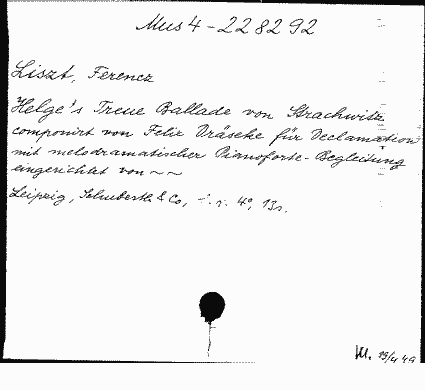 Mus 4 - 228292
Liszt, Ferencz
Helge's Treue Ballade von Strachwitz
componirt von Felix Dräseke für Declamation
mit melodramatischer Pianoforte-Begleitung
eingerichtet von ~~
Leipzig, Schuberth & Co, 4°, 13s.
15/4 49